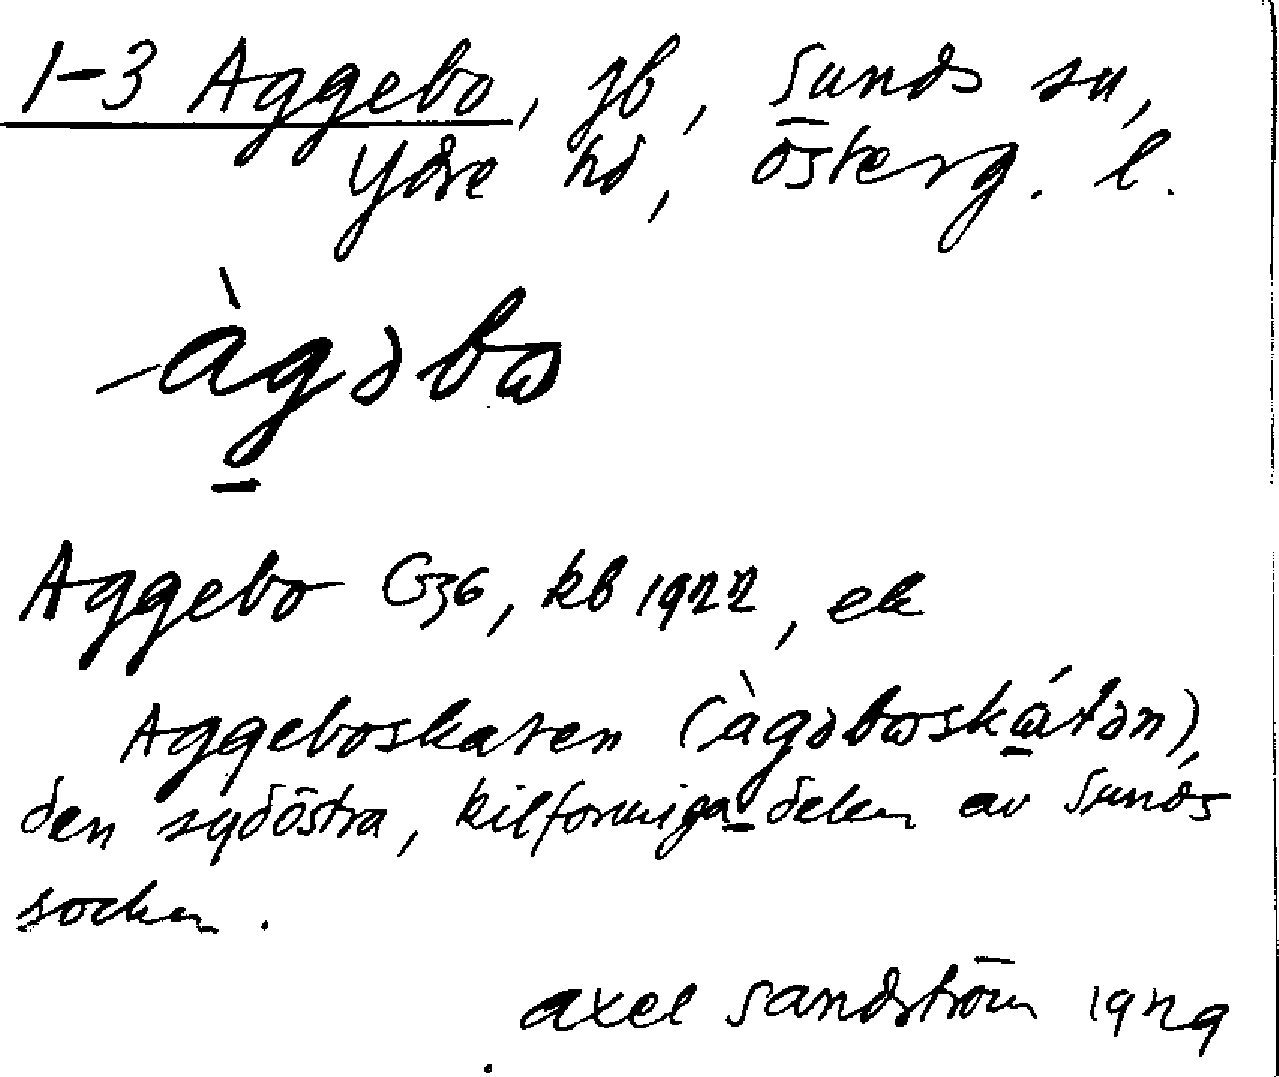 1-3 Aggebo, jb, Sunds sn,
Ydre hd, Österg. l.
àgəbω
Aggebo G36, kb 1922, ek
Aggeboskaten (àgəbωskátən),
den sydöstra, kilformiga delen av Sunds
socken.
Axel Sandström 1929